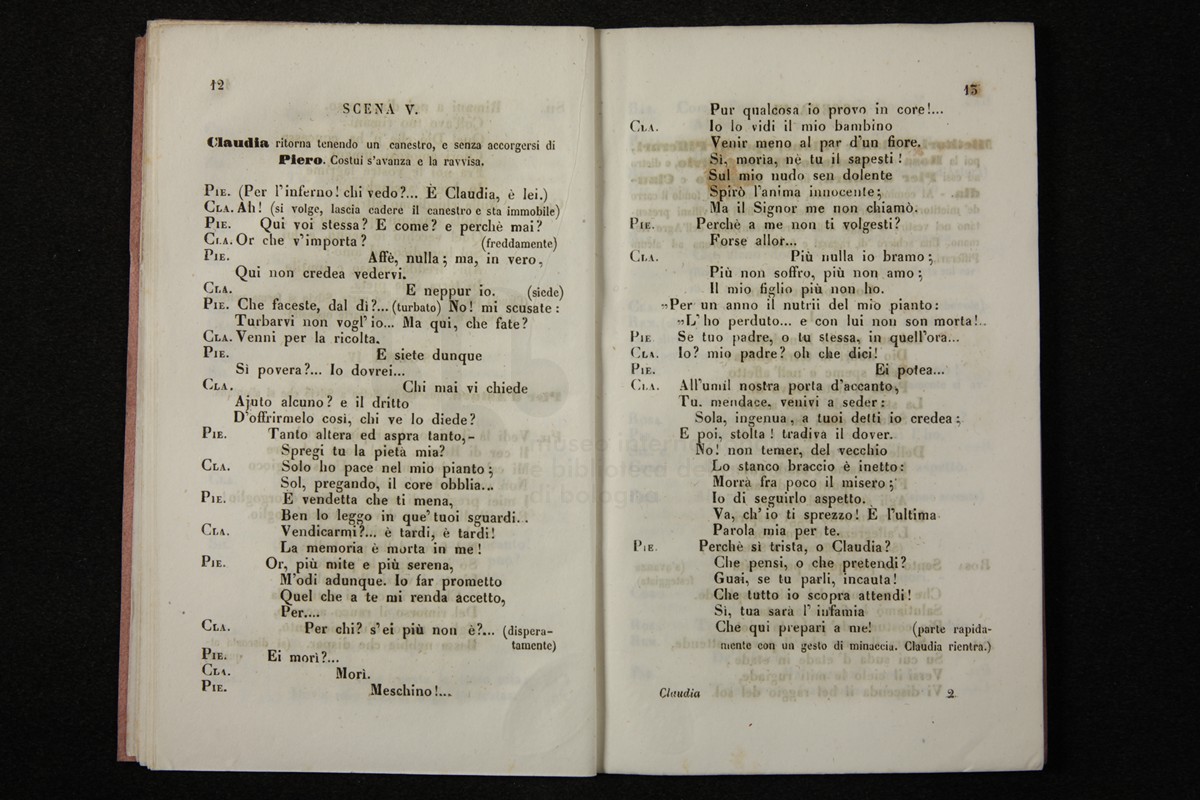 12
SCENA V.
Claudia ritorna tenendo un canestro, e senza accorgersi di
Piero. Costui s'avanza e la ravvisa.
PIE. (Per l'inferno! chi vedo?... È Claudia, è lei.)
CLA. Ah! (si volge, lascia cadere il canestro e sta immobile)
PIE. Qui voi stessa? E come? e perchè mai?
CLA. Or che v'importa? (freddamente)
PIE. Affè, nulla; ma, in vero,
Qui non credea vedervi.
CLA. E neppur io. (siede)
PIE. Che faceste, dal dì?... (turbato) No! mi scusate:
Turbarvi non vogl'io... Ma qui, che fate?
CLA. Venni per la ricolta.
PIE. E siete dunque
Sì povera?... Io dovrei...
CLA. Chi mai vi chiede
Ajuto alcuno? e il dritto
D'offrirmelo così, chi ve lo diede?
PIE. Tanto altera ed aspra tanto,-
Spregi tu la pietà mia?
CLA. Solo ho pace nel mio pianto;
Sol, pregando, il core obblia...
PIE. È vendetta che ti mena,
Ben lo leggo in que' tuoi sguardi..
CLA. Vendicarmi?... è tardi, è tardi!
La memoria è morta in me!
PIE. Or, più mite e più serena,
M'odi adunque. Io far prometto
Quel che a te mi renda accetto,
Per....
CLA. Per chi? s'ei più non è?... (dispera-
tamente)
PIE. Ei morì?...
CLA. Morì.
PIE. Meschino!...
13
Pur qualcosa io provo in core!...
CLA. Io lo vidi il mio bambino
Venir meno al par d'un fiore.
Sì, moria, nè tu il sapesti!
Sul mio nudo sen dolente
Spirò l'anima innocente;
Ma il Signor me non chiamò.
PIE. Perchè a me non ti volgesti?
Forse allor...
CLA. Più nulla io bramo;
Più non soffro, più non amo;
Il mio figlio più non ho.
»Per un anno il nutrii del mio pianto:
»L'ho perduto... e con lui non son morta!..
PIE Se tuo padre, o tu stessa, in quell'ora...
CLA. Io? mio padre? oh che dici!
PIE. Ei potea...
CLA. All'umil nostra porta d'accanto,
Tu. mendace. venivi a seder:
Sola, ingenua, a tuoi detti io credea;
E poi, stolta! tradiva il dover.
No! non temer, del vecchio
Lo stanco braccio è inetto:
Morrà fra poco il misero;
Io di seguirlo aspetto.
Va, ch'io ti sprezzo! È l'ultima
Parola mia per te.
PIE. Perchè sì trista, o Claudia?
Che pensi, o che pretendi?
Guai, se tu parli, incauta!
Che tutto io scopra attendi!
Sì, tua sarà l'infamia
Che qui prepari a me! (parte rapida-
mente con un gesto di minaccia. Claudia rientra.)
Claudia 2
museo inter
e biblioteca de
di bologna